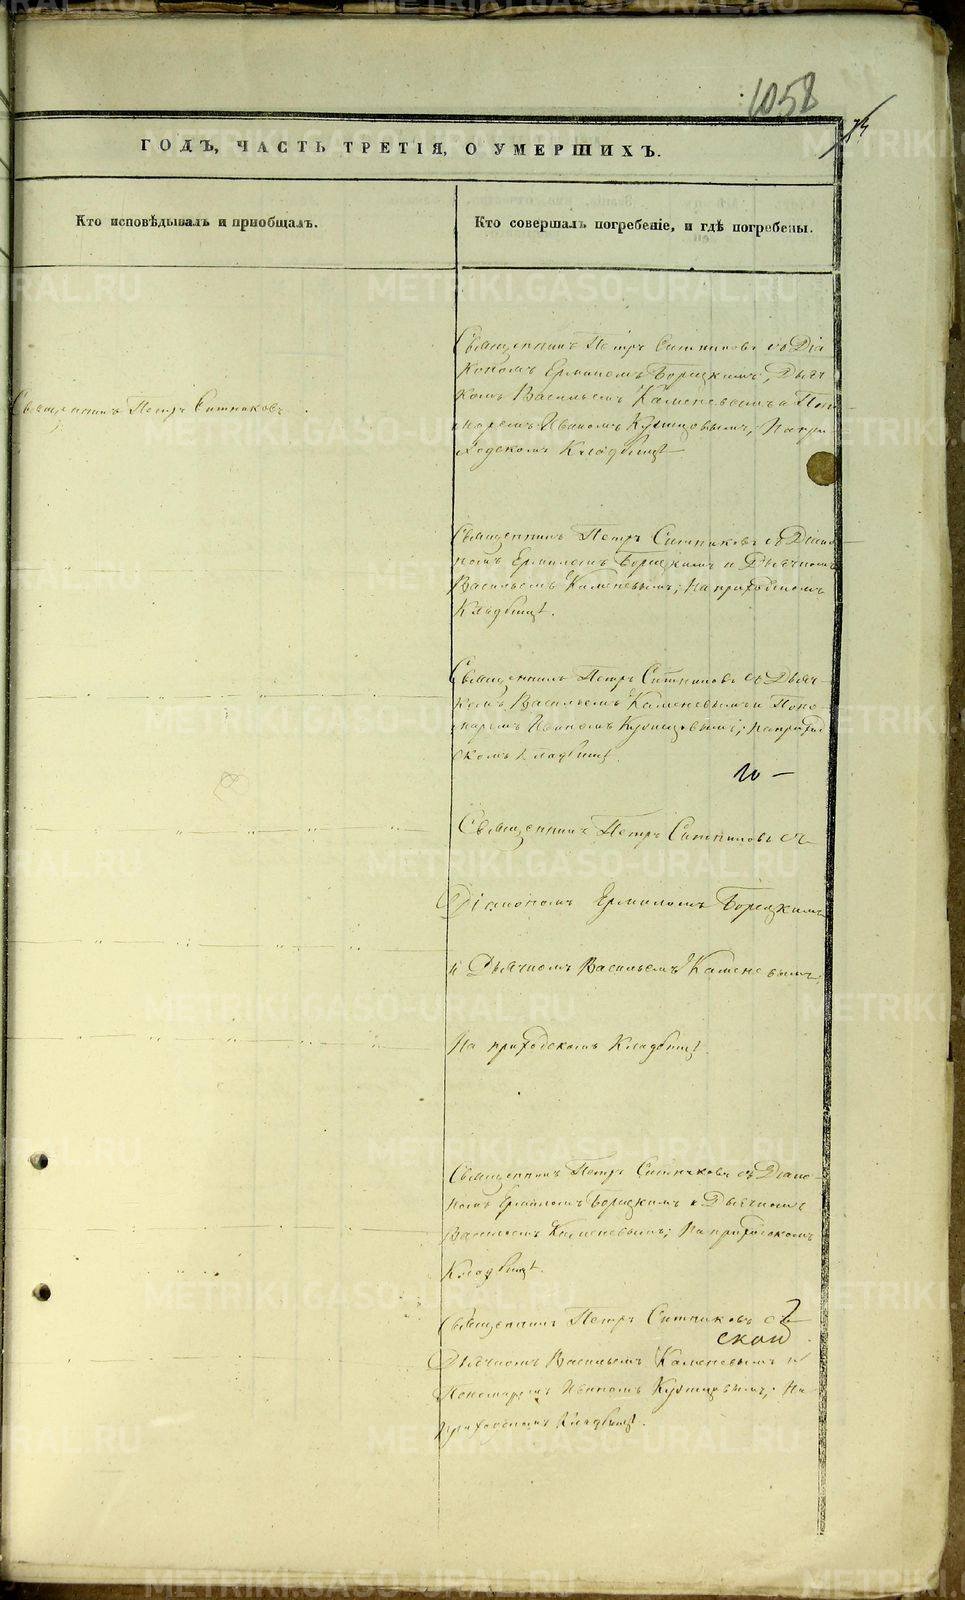 1058
ГОДЪ, ЧАСТЬ ТРЕТІЯ, О УМЕРШИХЪ.
Кто исповѣдывалъ и пріобщалъ.
Кто совершалъ погребеніе, и гдѣ погребены.
Священникъ Петръ Ситниковъ
Священникъ Петръ Ситниковъ съ Діа
кономъ Ермиломъ Борецкимъ, Дьяч
комъ Васильемъ Каменевымъ и Поно
маремъ Иваномъ Кузнецовымъ, На при
ходскомъ Кладбищѣ
Священникъ Петръ Ситниковъ съ Діако
номъ Ермиломъ Борецкимъ и Дьячкомъ
Васильемъ Каменевымъ; На приходскомъ
Кладбищѣ.
Священникъ Петръ Ситниковъ съ Дьяч-
комъ Васильемъ Каменевымъ и Поно-
маремъ Иваномъ Кузнецовымъ; На приход
скомъ Кладбищѣ.
Священникъ Петръ Ситниковъ съ
Діакономъ Ермиломъ Борецкимъ
и Дьячкомъ Васильемъ Каменевымъ;
На приходскомъ Кладбищѣ.
Священникъ Петръ Ситниковъ съ Діако-
номъ Ермиломъ Борецкимъ и Дьячкомъ
Васильемъ Каменевымъ; На приходскомъ
Кладбищѣ.
Священникъ Петръ Ситниковъ съ
Дьячкомъ Васильемъ Каменевымъ и
Пономаремъ Иваномъ Кузнецовымъ; На
приходскомъ Кладбищѣ.
METRIKI.GASO-URAL.RU